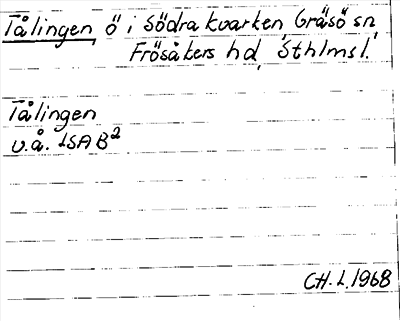 Tålingen ö i Södra kvarken, Gräsö sn
Frösåkers hd, Sthlms l.
Tålingen
u.å. LSA B2
CH. L. 1968